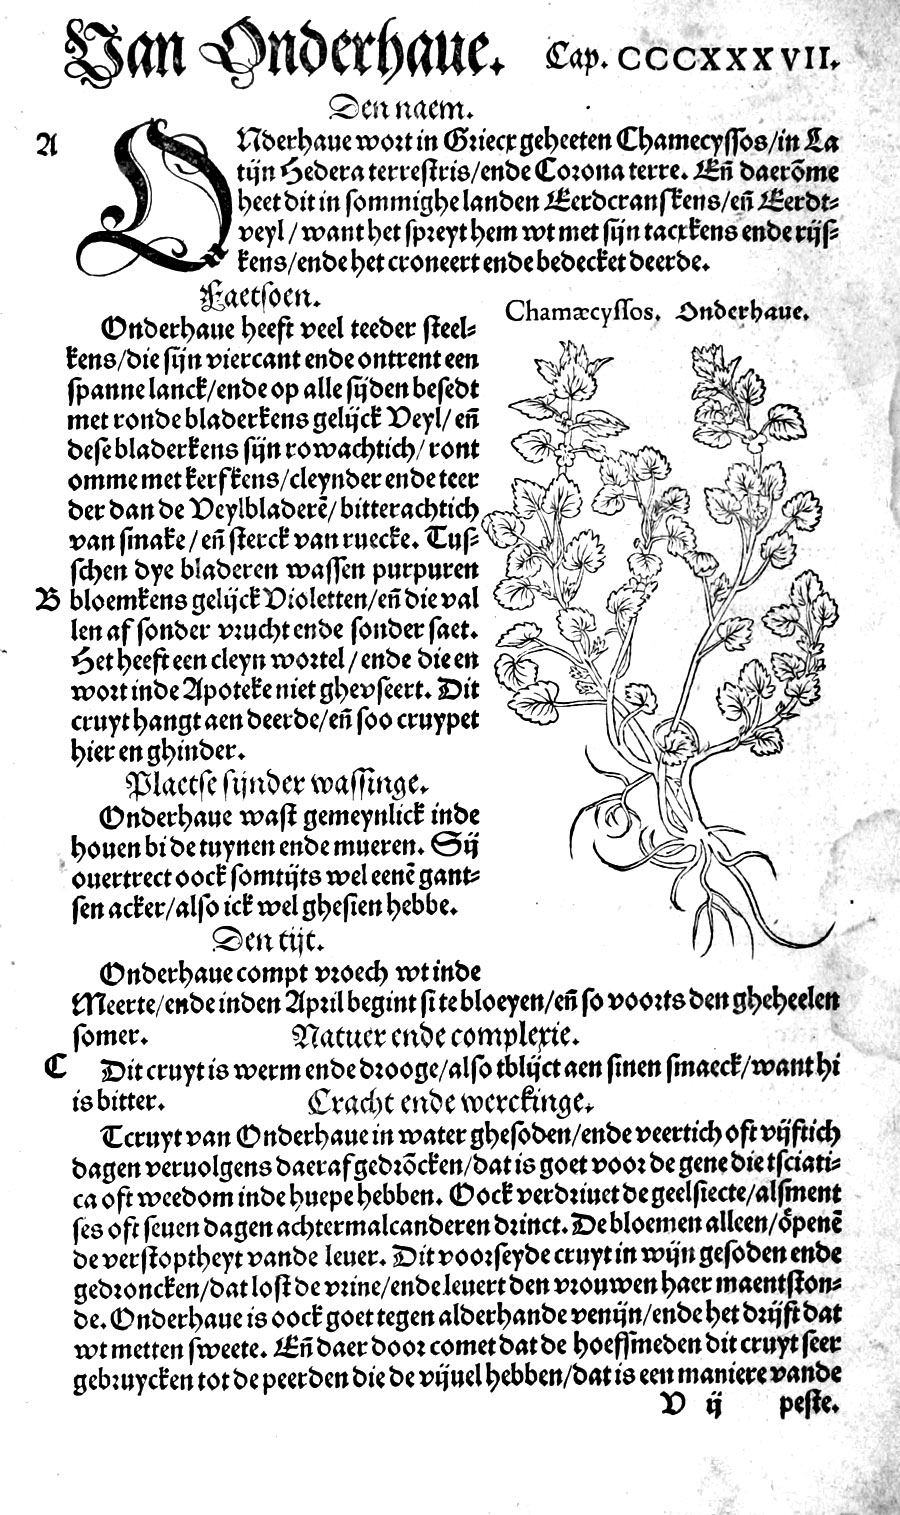 Van Onderhaue. Cap. CCCXXXVII.
Den naem.
A
ONderhaue wort in Griecx geheeten Chamecyssos/in La
tijn Hedera terrestris/ende Corona terre. Eñ daerõme
heet dit in sommighe landen Eerdcranskens/eñ Eerdt-
veyl / want het spreyt hem wt met sijn tacxkens ende rijs-
kens/ende het croneert ende bedecket deerde.
Faetsoen.
Onderhaue heeft veel teeder steel-
kens/die sijn viercant ende ontrent een
spanne lanck/ende op alle sijden besedt
met ronde bladerkens gelijck Veyl/ eñ
dese bladerkens sijn rowachtich/ ront
omme met kerfkens/cleynder ende teer
der dan de Veylbladerẽ/ bitterachtich
van smake / eñ sterck van ruecke. Tus-
schen dye bladeren wassen purpuren
B bloemkens gelijck Violetten/eñ die val
len af sonder vrucht ende sonder saet.
Het heeft een cleyn wortel / ende die en
wort inde Apoteke niet ghevseert. Dit
cruyt hangt aen deerde/eñ soo cruypet
hier en ghinder.
Chamæcyssos. Onderhaue.
Plaetse sijnder wassinge.
Onderhaue wast gemeynlick inde
houen bi de tuynen ende mueren. Sij
ouertrect oock somtijts wel eenẽ gant-
sen acker/also ick wel ghesien hebbe.
Den tijt.
Onderhaue compt vroech wt inde
Meerte/ende inden April begint si te bloeyen/eñ so voorts den gheheelen
somer. Natuer ende complexie.
C Dit cruyt is werm ende drooge/also tblijct aen sinen smaeck/want hi
is bitter. Cracht ende werckinge.
Tcruyt van Onderhaue in water ghesoden/ende veertich oft vijftich
dagen veruolgens daer af gedrõcken/dat is goet voor de gene die tsciati-
ca oft weedom inde huepe hebben. Oock verdriuet de geelsiecte/alsment
ses oft seuen dagen achtermalcanderen drinct. De bloemen alleen/ õpenẽ
de verstoptheyt vande leuer. Dit voorseyde cruyt in wijn gesoden ende
gedroncken/dat lost de vrine/ende leuert den vrouwen haer maentston-
de. Onderhaue is oock goet tegen alderhande venijn/ende het drijft dat
wt metten sweete. Eñ daer door comet dat de hoefsmeden dit cruyt seer
gebruycken tot de peerden die de vijuel hebben/dat is een maniere vande
V ij peste.